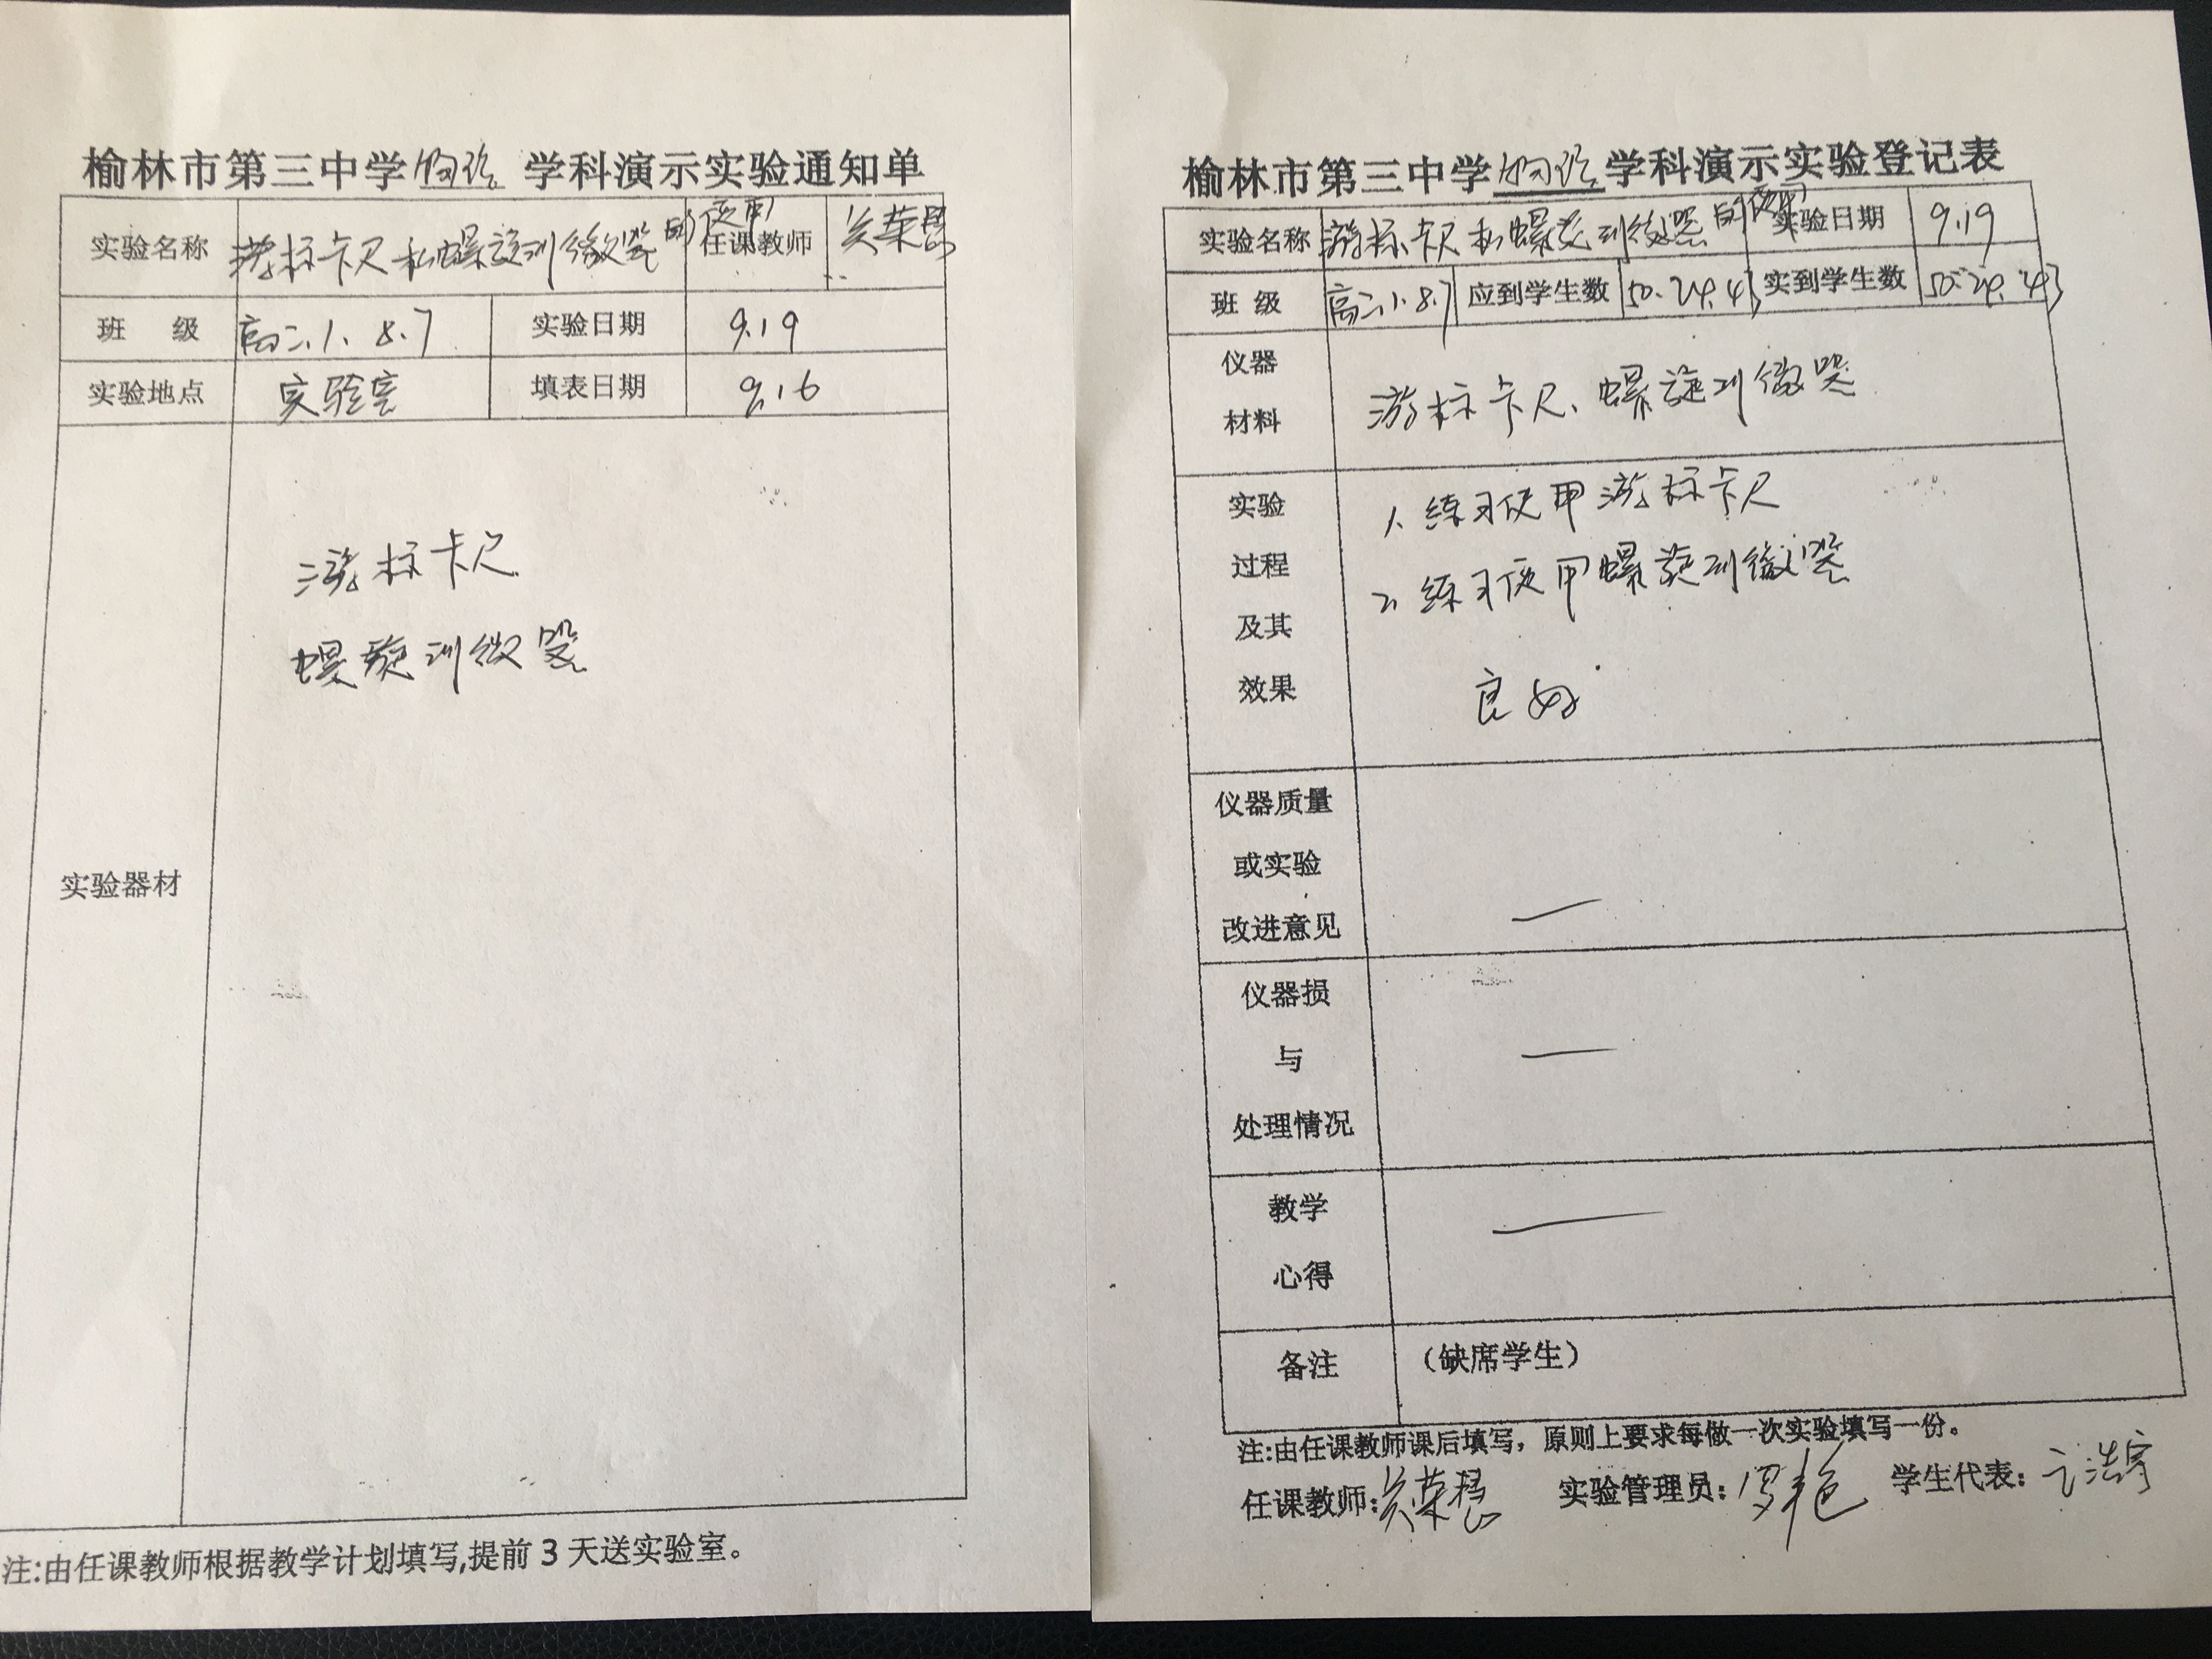 榆林市第三中学物理学科演示实验通知单
实验名称 游标卡尺和螺旋测微器的使用 任课教师 吴荣慧
班 级 高二.1、8.7 实验日期 9.19
实验地点 实验室 填表日期 9.16
实验器材
游标卡尺
螺旋测微器
注:由任课教师根据教学计划填写,提前3天送实验室。
榆林市第三中学物理学科演示实验登记表
实验名称 游标卡尺和螺旋测微器的使用 实验日期 9.19
班 级 高二.1.8.7 应到学生数 50.24.43 实到学生数 50.24.43
仪器
材料
游标卡尺、螺旋测微器
实验
过程
及其
效果
1、练习使用游标卡尺
2、练习使用螺旋测微器
良好
仪器质量
或实验
改进意见
仪器损
与
处理情况
教学
心得
备注 (缺席学生)
注:由任课教师课后填写，原则上要求每做一次实验填写一份。
任课教师:吴荣慧 实验管理员:罗艳 学生代表:浩宇